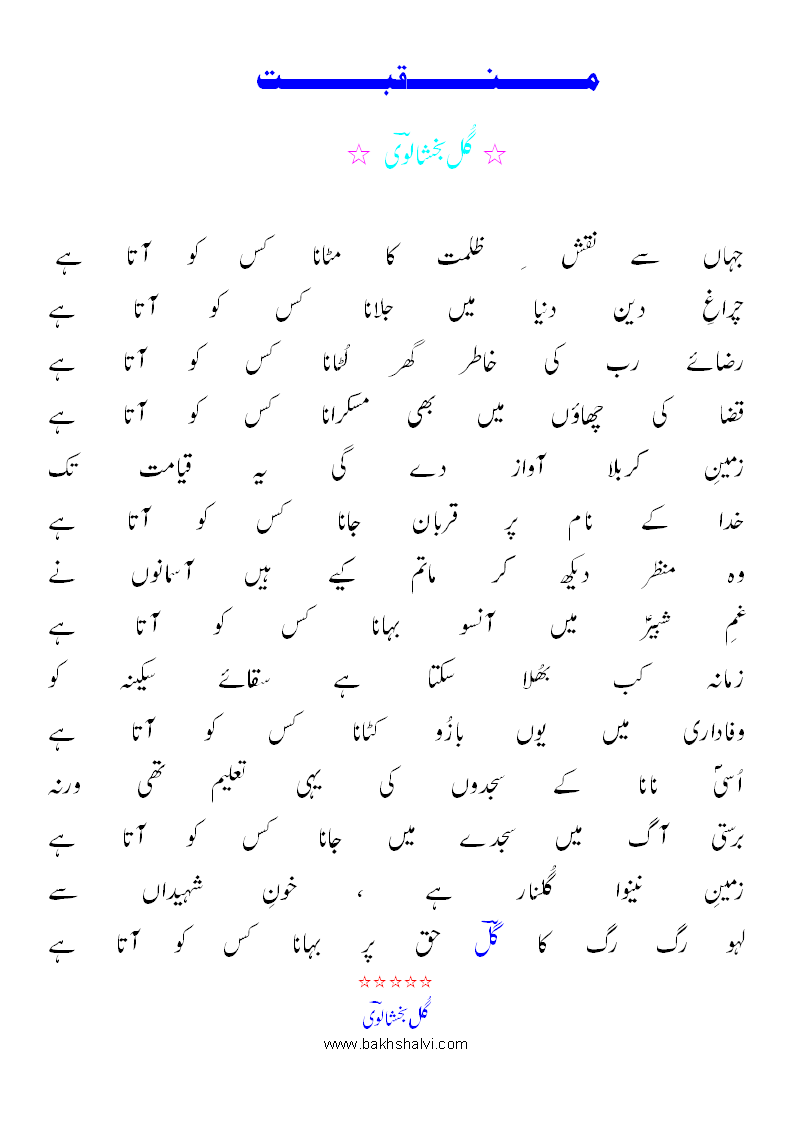 منقبت
☆ گُل بخشالوی ☆
جہاں سے نقشِ ظلمت کا مٹانا کس کو آتا ہے
چراغِ دین دنیا میں جلانا کس کو آتا ہے
رضائے رب کی خاطر گھر لُٹانا کس کو آتا ہے
قضا کی چھاؤں میں بھی مسکرانا کس کو آتا ہے
زمینِ کربلا آواز دے گی یہ قیامت تک
خدا کے نام پر قربان جانا کس کو آتا ہے
وہ منظر دیکھ کر ماتم کیے ہیں آسمانوں نے
غمِ شبیرؑ میں آنسو بہانا کس کو آتا ہے
زمانہ کب بھُلا سکتا ہے سقائے سکینہ کو
وفاداری میں یوں بازُو کٹانا کس کو آتا ہے
اُسیؐ نانا کے سجدوں کی یہی تعلیم تھی ورنہ
برستی آگ میں سجدے میں جانا کس کو آتا ہے
زمینِ نینوا گُلنار ہے ، خونِ شہیداں سے
لہو رگ رگ کا گُلؔ حق پر بہانا کس کو آتا ہے
☆☆☆☆☆
گُل بخشالوی
www.bakhshalvi.com